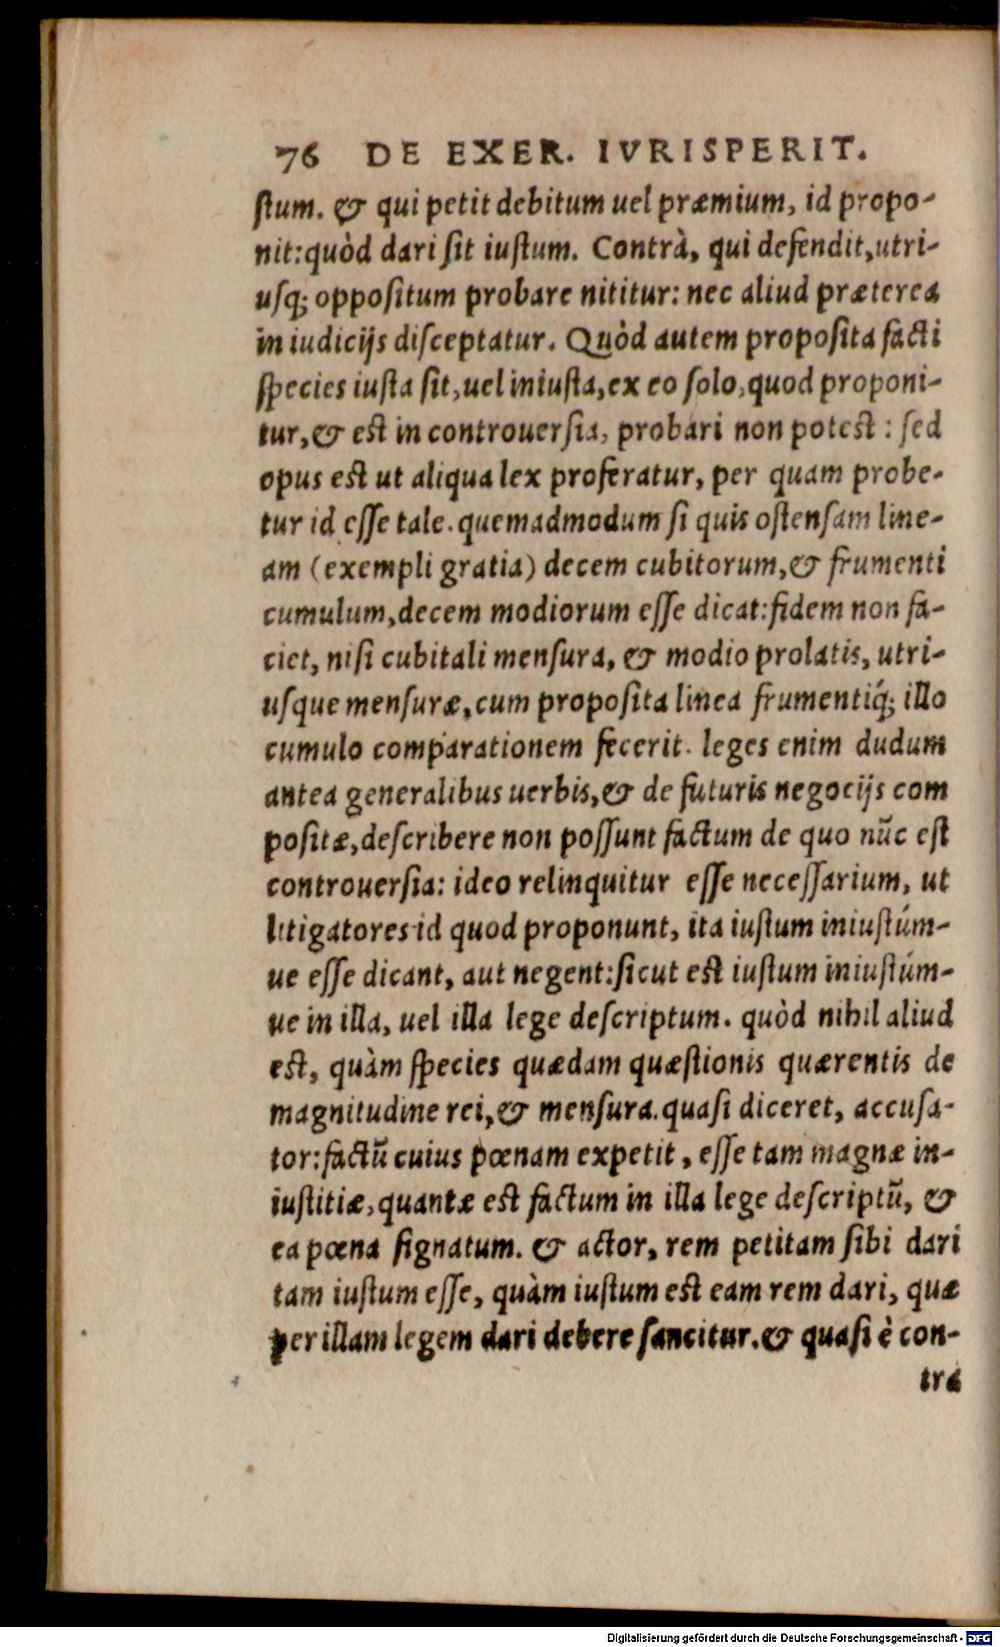 76 DE EXER. IVRISPERIT.
stum. & qui petit debitum uel præmium, id propo-
nit: quòd dari sit iustum. Contrà, qui defendit, utri-
usq; oppositum probare nititur: nec aliud præterea
in iudicijs disceptatur. Quòd autem proposita facti
species iusta sit, uel iniusta, ex eo solo, quod proponi-
tur, & est in controuersia, probari non potest: sed
opus est ut aliqua lex proferatur, per quam probe-
tur id esse tale. quemadmodum si quis ostensam line-
am (exempli gratia) decem cubitorum, & frumenti
cumulum, decem modiorum esse dicat: fidem non fa-
ciet, nisi cubitali mensura, & modio prolatis, utri-
usque mensuræ, cum proposita linea frumentiq́; illo
cumulo comparationem fecerit. leges enim dudum
antea generalibus uerbis, & de futuris negocijs com
positæ, describere non possunt factum de quo nũc est
controuersia: ideo relinquitur esse necessarium, ut
litigatores id quod proponunt, ita iustum iniustúm-
ue esse dicant, aut negent: sicut est iustum iniustúm-
ue in illa, uel illa lege descriptum. quòd nihil aliud
est, quàm species quædam quæstionis quærentis de
magnitudine rei, & mensura. quasi diceret, accusa-
tor: factũ cuius pœnam expetit, esse tam magnæ in-
iustitiæ, quantæ est factum in illa lege descriptũ, &
ea pœna signatum. & actor, rem petitam sibi dari
tam iustum esse, quàm iustum est eam rem dari, quæ
per illam legem dari debere sancitur. & quasi è con-
tra
Digitalisierung gefördert durch die Deutsche Forschungsgemeinschaft - DFG